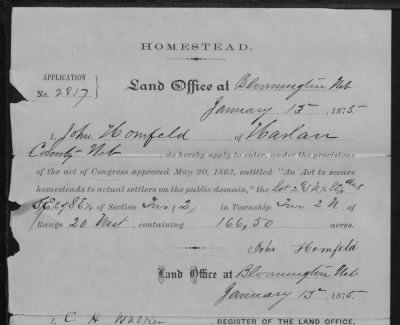 HOMESTEAD.
APPLICATION
No. 2817
Land Office at Bloomington Neb
January 15, 1875
I, John Homfeld of Harlan
County Neb, do hereby apply to enter, under the provisions
of the act of Congress approved May 20, 1862, entitled "An Act to secure
homesteads to actual settlers on the public domain," the Lot 2
of Section Two, 2, in Township Two 2 N of
Range 20 West, containing 166,50 acres.
John Homfeld
Land Office at Bloomington Neb
January 15, 1875
I, C H Walker, REGISTER OF THE LAND OFFICE,